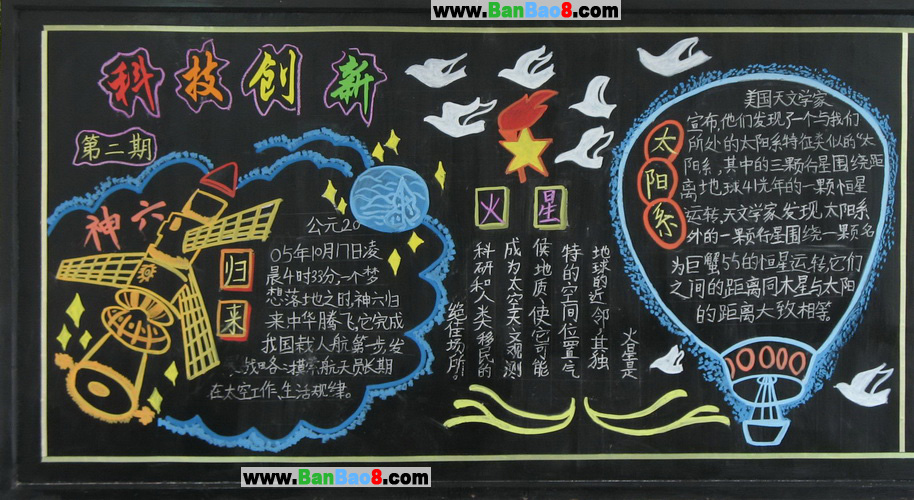 www.BanBao8.com
科技创新
第二期
神六
归来
公元20
05年10月17日凌
晨4时33分,一个梦
想落地之时,神六归
来中华腾飞,它完成
我国载人航第步发
航天员长期
在太空工作、生活规律。
火星
火星是
地球的近邻,其独
特的空间位置气
候地质,使它可能
成为太空天文观测
科研和人类移民的
绝佳场所。
太阳系
美国天文学家
宣布,他们发现了个与我们
所处的太阳系特征类似的“太
阳系,其中的三颗行星围绕距
离地球41光年的一颗恒星
运转,天文学家发现,太阳系
外的一颗行星围绕一颗名
为巨蟹55的恒星运转,它们
之间的距离同木星与太阳
的距离大致相等。
www.BanBao8.com